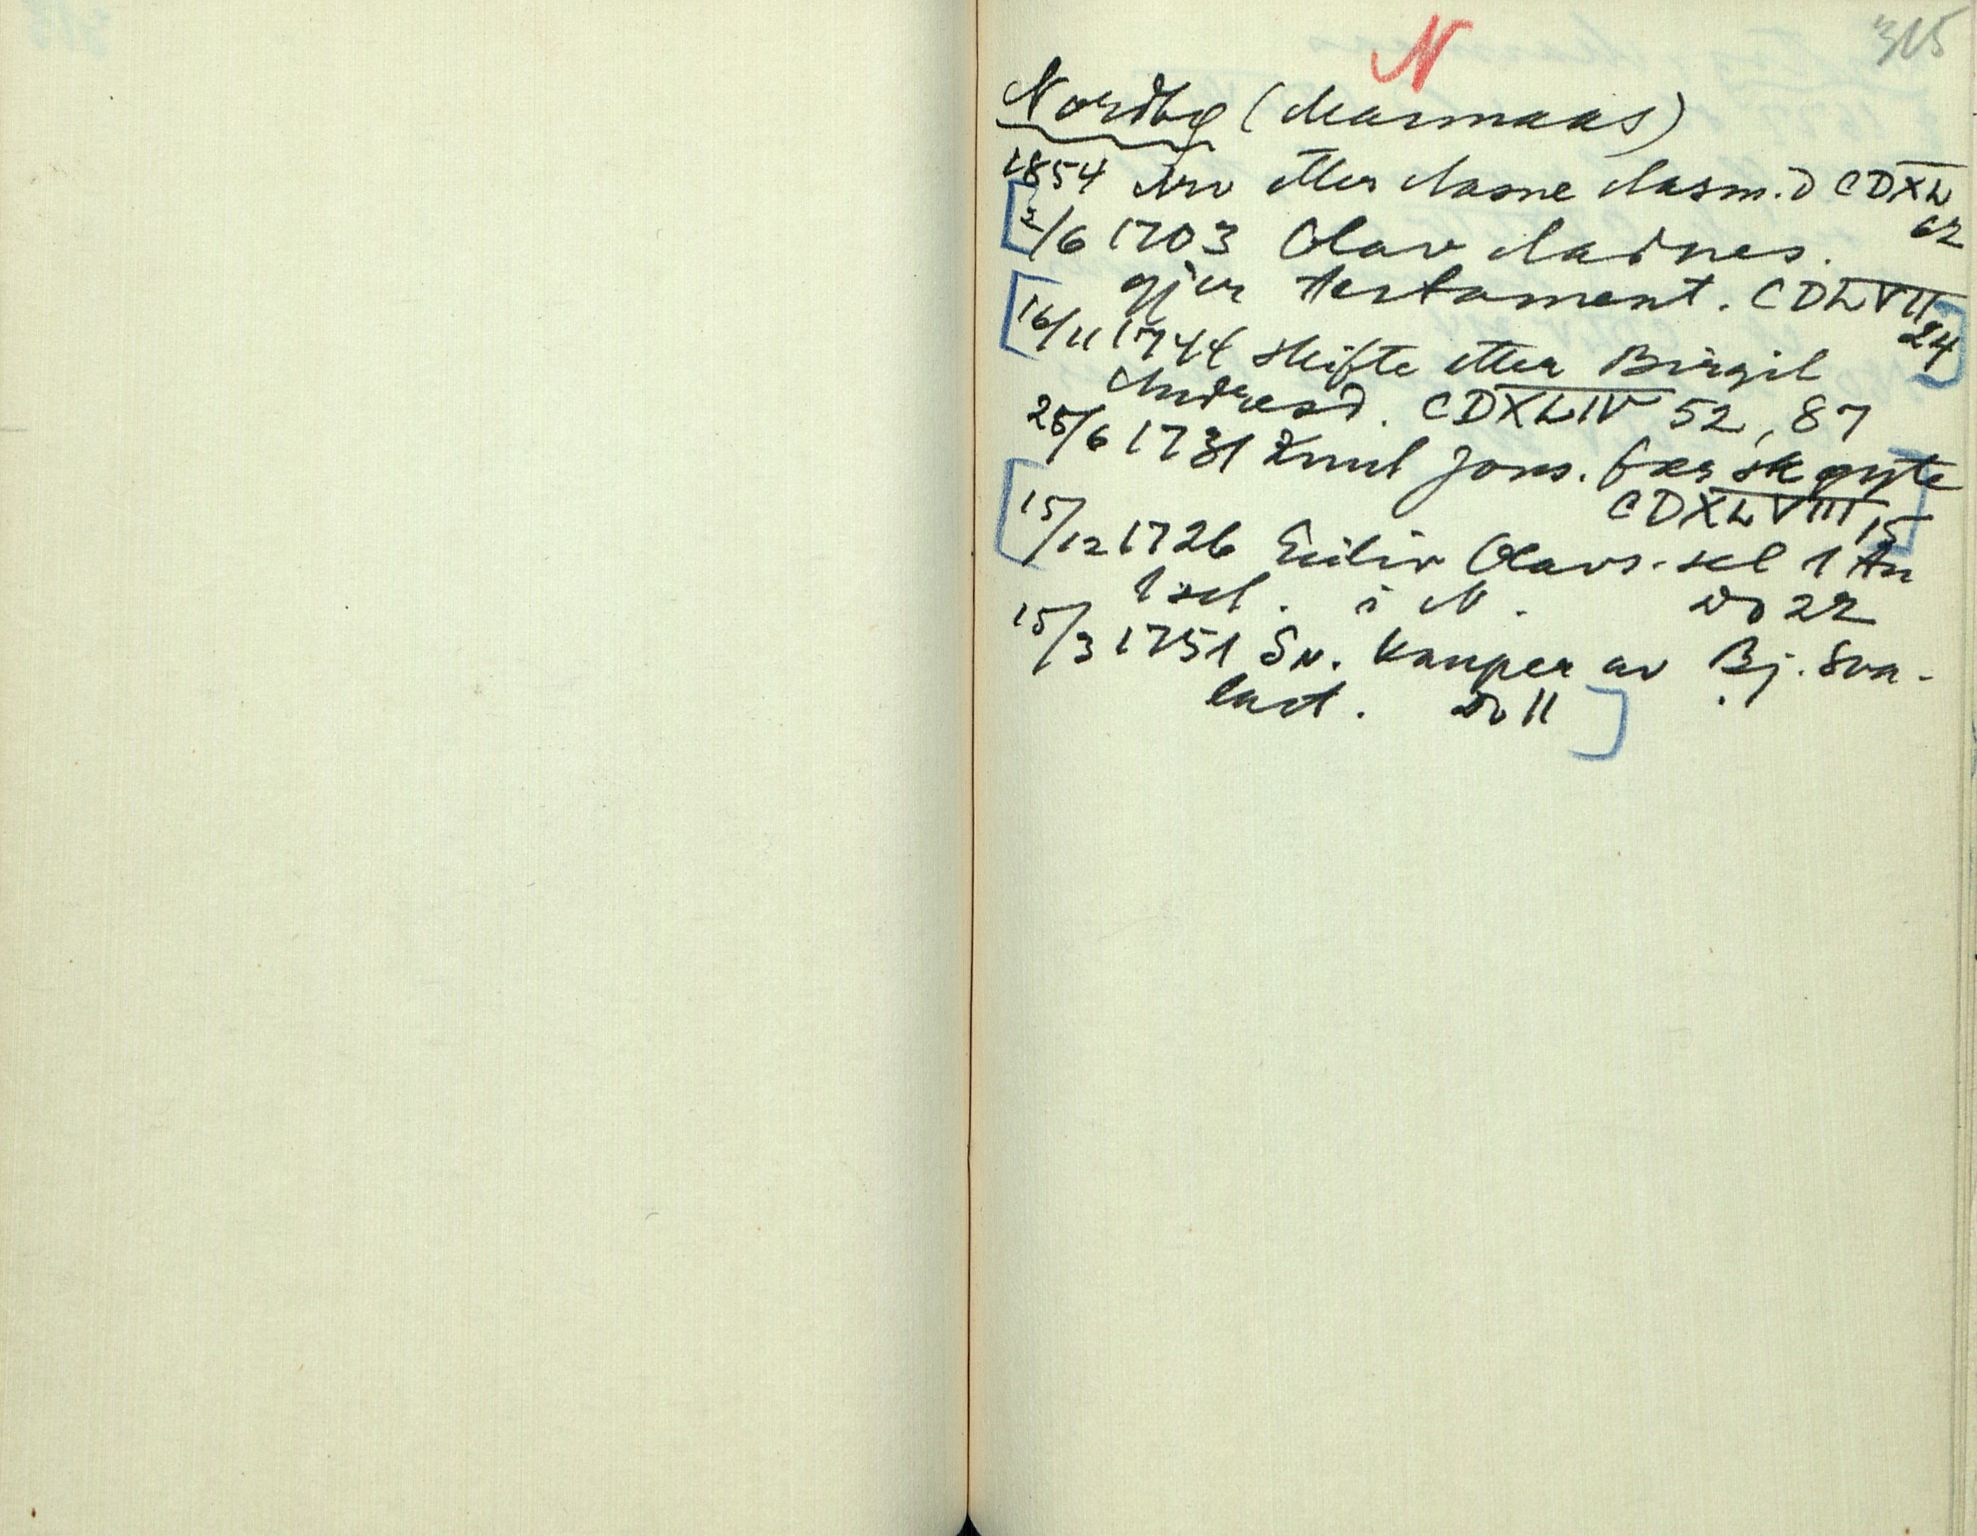 315
N
Nordbg (Marmaas)
1854 Arv etter Aasne Aasm.d CDXL
62
[2/6 1703 Olav Aadnes.
gjer testament. CDLVII
24]
[16/11 1744 skifte etter Birgit
Andresd. CDXLIV 52, 87
25/6 1731 Knut Jons. fær skøyte
CDXLVIII 15]
[15/12 1726 Eiliv Olavs. sel 1 tn
1 set. i N. Do 22
15/3 1751 Sv. kauper av Bj. Sva-
last. Do 11]